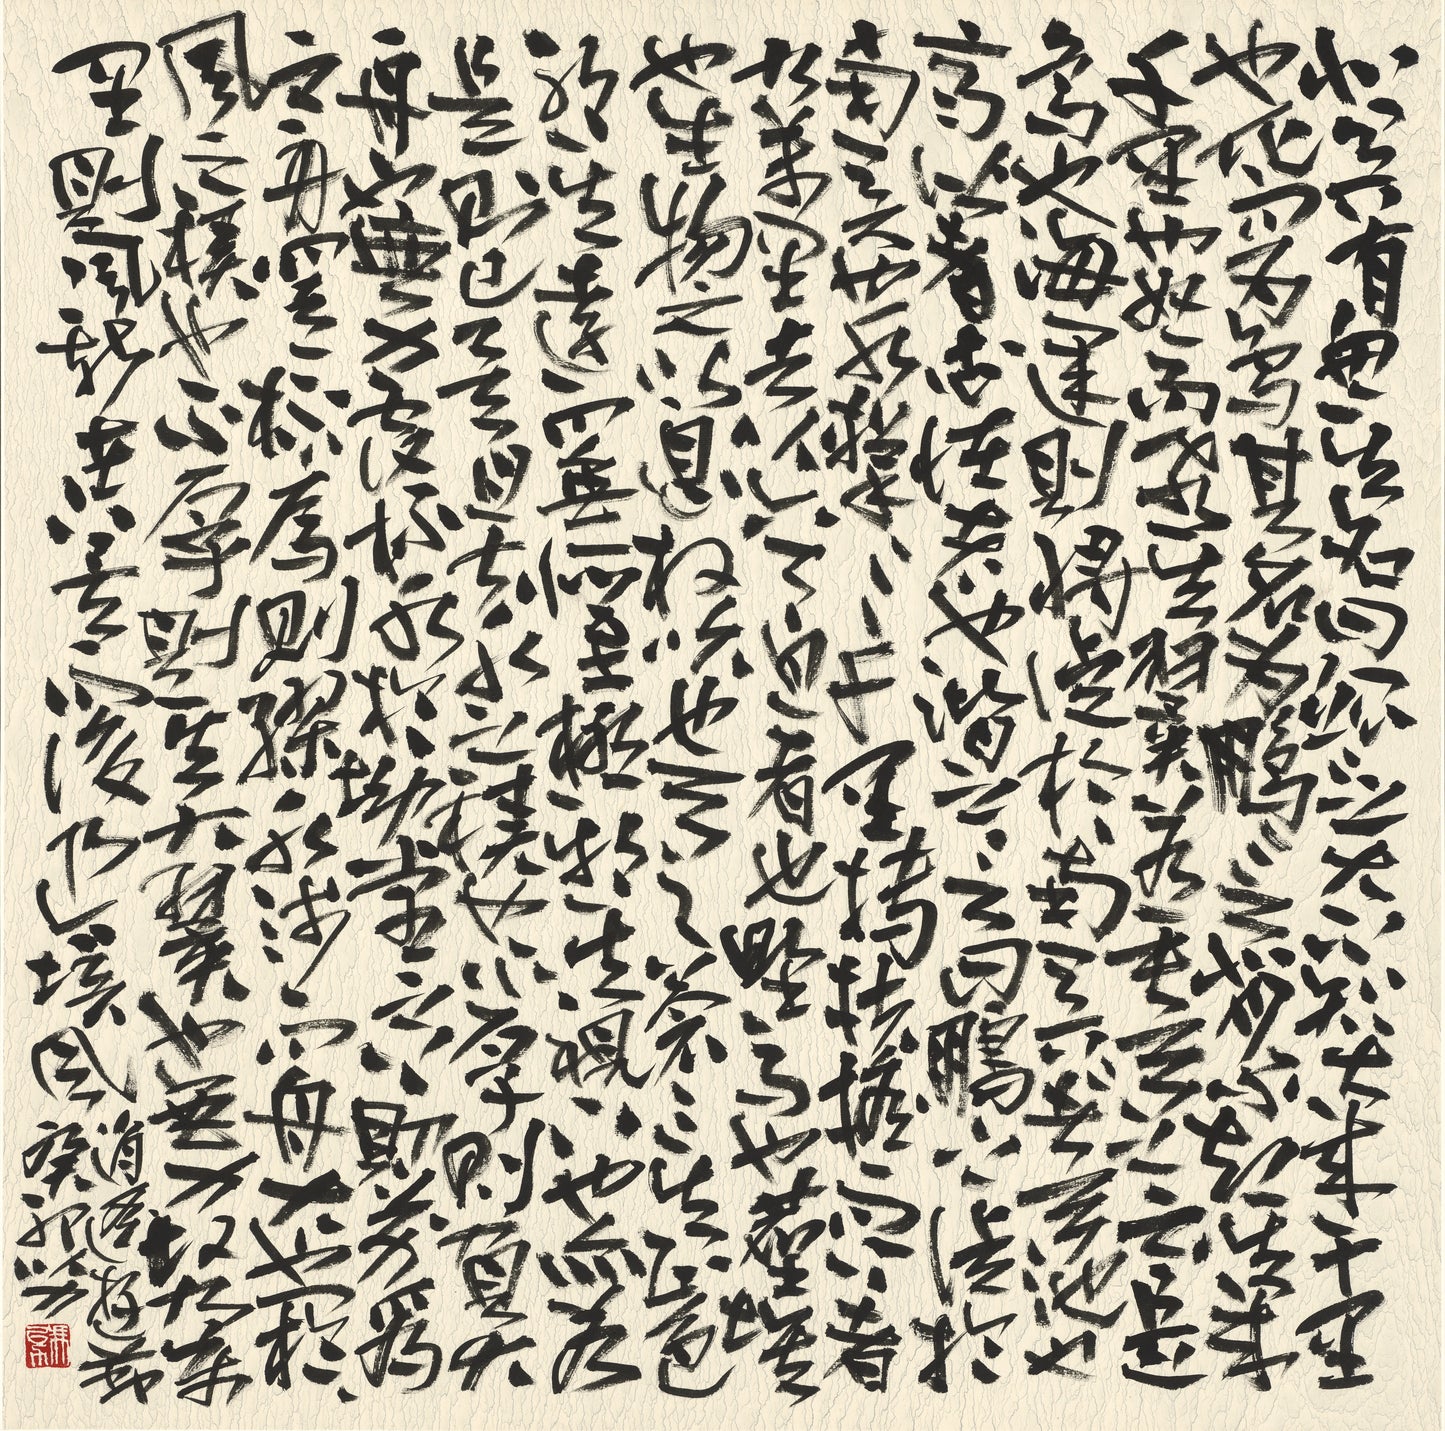 北冥有魚其名曰鯤鯤之大不知其幾千里
也化而為鳥其名為鵬鵬之背不知其幾
千里也怒而飛其翼若垂天之雲是
鳥也海運則將徙於南冥南冥者天池也
齊諧者志怪者也諧之言曰鵬之徙於
南冥也水擊三千里摶扶搖而上者
九萬里去以六月息者也野馬也塵埃
也生物之以息相吹也天之蒼蒼其正色
邪其遠而無所至極邪其視下也亦若
是則已矣且夫水之積也不厚則負大
舟也無力覆杯水於坳堂之上則芥為
之舟置杯焉則膠水淺而舟大也
風之積也不厚則其負大翼也無力故九萬
里則風斯在下矣而後乃今培風
逍遙遊節
癸卯